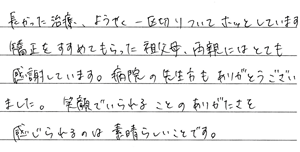 長かった治療、ようやく一区切りついてホッとしています
矯正をすすめてもらった祖父母、両親にはとても
感謝しています。病院の先生方もありがとうござい
ました。 笑顔でいられることのありがたさを
感じられるのは素晴らしいことです。